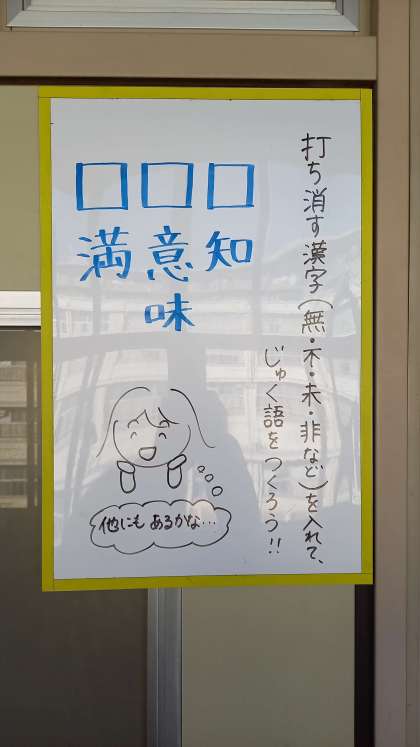 打ち消す漢字(無・不・未・非など)を入れて、
じゅく語をつくろう!!
□知
□意味
□満
他にもあるかな…